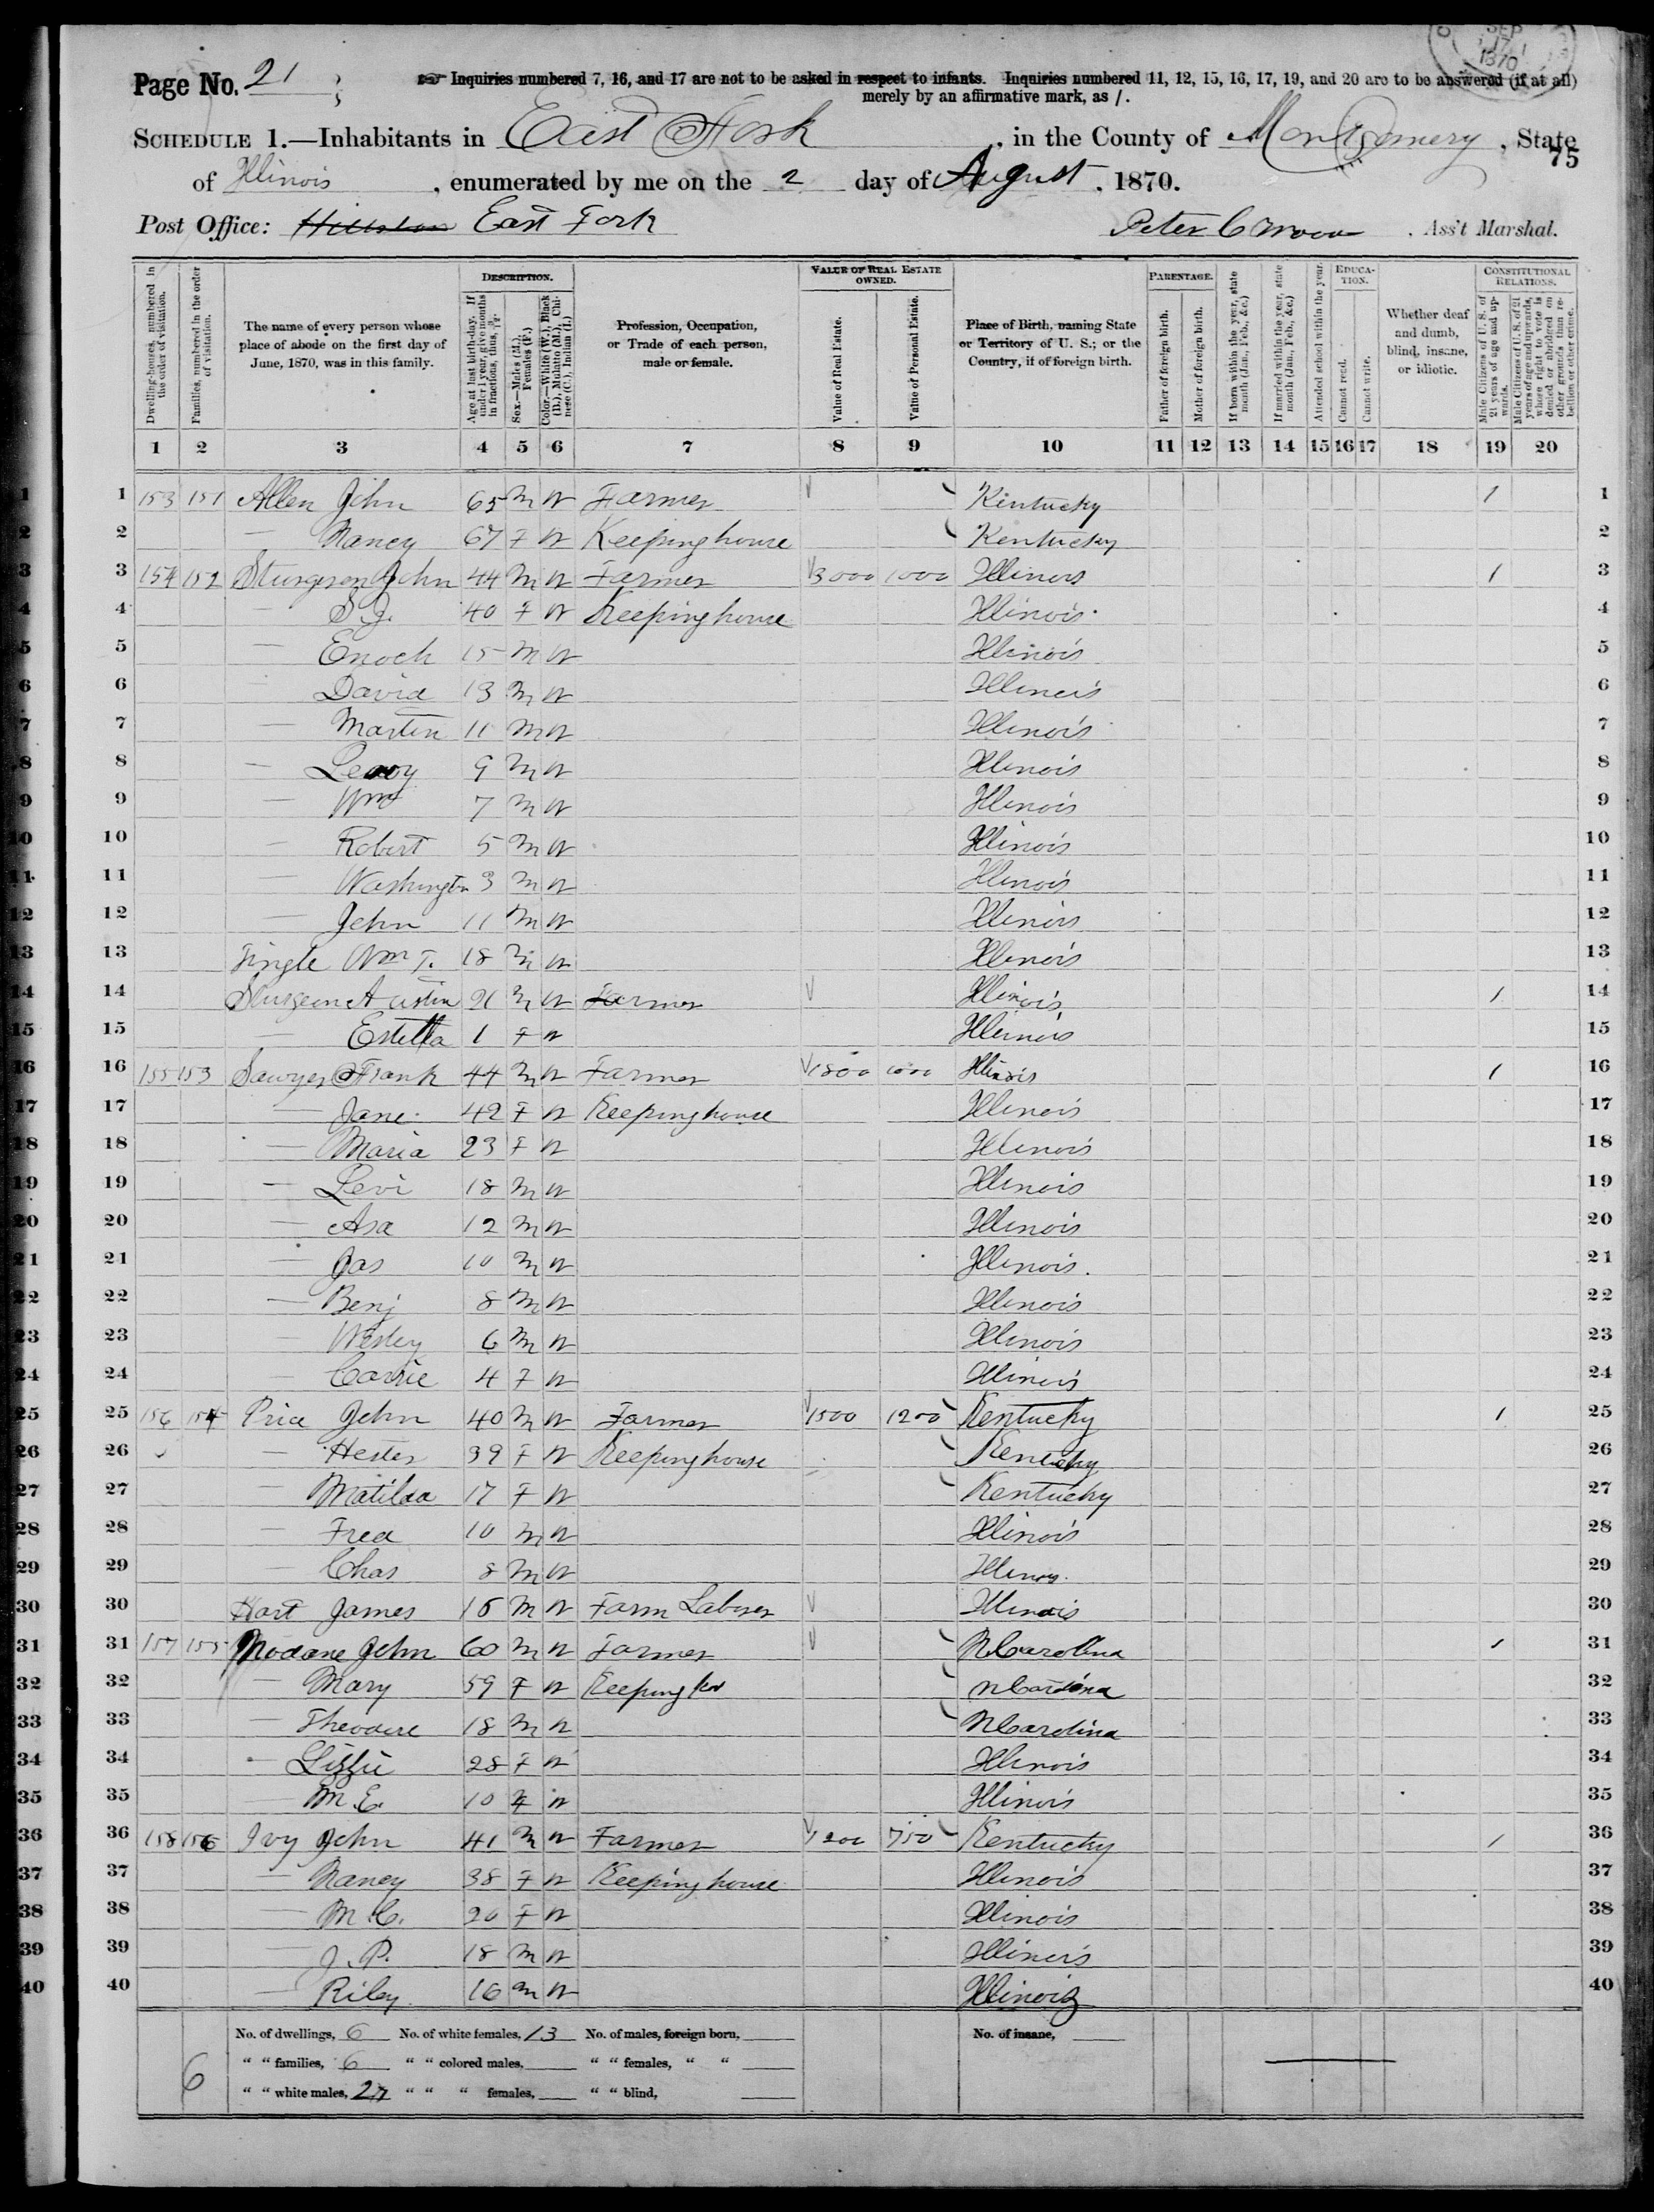 SEP 17 1870
Page No. 21
Inquiries numbered 7, 16, and 17 are not to be asked in respect to infants. Inquiries numbered 11, 12, 15, 16, 17, 19, and 20 are to be answered (if at all)
merely by an affirmative mark, as /.
SCHEDULE 1.—Inhabitants in East Fork, in the County of Montgomery, State
75
of Illinois, enumerated by me on the 2 day of August, 1870.
Post Office: East Fork Peter C , Ass't Marshal.
Dwelling-houses, numbered in the order of visitation.
Families, numbered in the order of visitation.
The name of every person whose place of abode on the first day of June, 1870, was in this family.
DESCRIPTION.
Age at last birth-day. If under 1 year, give months in fractions, thus, 3/12.
Sex.—Males (M.), Females (F.)
Color.—White (W.), Black (B.), Mulatto (M.), Chinese (C.), Indian (I.)
Profession, Occupation, or Trade of each person, male or female.
VALUE OF REAL ESTATE OWNED.
Value of Real Estate.
Value of Personal Estate.
Place of Birth, naming State or Territory of U. S.; or the Country, if of foreign birth.
PARENTAGE.
Father of foreign birth.
Mother of foreign birth.
If born within the year, state month (Jan., Feb., &c.)
If married within the year, state month (Jan., Feb., &c.)
Attended school within the year.
EDUCATION.
Cannot read.
Cannot write.
Whether deaf and dumb, blind, insane, or idiotic.
CONSTITUTIONAL RELATIONS.
Male Citizens of U. S. of 21 years of age and upwards.
Male Citizens of U. S. of 21 years of age and upwards, whose right to vote is denied or abridged on other grounds than rebellion or other crime.
1 2 3 4 5 6 7 8 9 10 11 12 13 14 15 16 17 18 19 20
1 1 153 151 Allen John 65 M W Farmer Kentucky / 1
2 2 — Nancy 67 F W Keeping house Kentucky 2
3 3 154 152 Sturgeon John 44 M W Farmer 3000 1000 Illinois / 3
4 4 — S. J. 40 F W Keeping house Illinois 4
5 5 — Enoch 15 M W Illinois 5
6 6 David 13 M W Illinois 6
7 7 — Martin 11 M W Illinois 7
8 8 — Leroy 9 M W Illinois 8
9 9 — Wm 7 M W Illinois 9
10 10 — Robert 5 M W Illinois 10
11 11 — Washington 3 M W Illinois 11
12 12 — John 11 M W Illinois 12
13 13 Tingle Wm T. 18 M W Illinois 13
14 14 Sturgeon Austin 21 M W Farmer Illinois / 14
15 15 — Estella 1 F W Illinois 15
16 16 155 153 Sawyer Frank 44 M W Farmer 1800 1000 Illinois / 16
17 17 — Jane 42 F W Keeping house Illinois 17
18 18 — Maria 23 F W Illinois 18
19 19 — Levi 18 M W Illinois 19
20 20 — Asa 12 M W Illinois 20
21 21 — Jas 10 M W Illinois. 21
22 22 — Benj 8 M W Illinois 22
23 23 — Wesley 6 M W Illinois 23
24 24 — Carrie 4 F W Illinois 24
25 25 156 154 Price John 40 M W Farmer 1500 1200 Kentucky / 25
26 26 — Hester 39 F W Keeping house Kentucky 26
27 27 — Matilda 17 F W Kentucky 27
28 28 — Fred 10 M W Illinois 28
29 29 — Chas 8 M W Illinois 29
30 30 Hart James 16 M W Farm Laborer Illinois 30
31 31 157 155 John 60 M W Farmer N Carolina / 31
32 32 — Mary 59 F W Keeping N Carolina 32
33 33 — Theodore 18 M W N Carolina 33
34 34 — Lizzie 28 F W Illinois 34
35 35 — M. E. 10 F W Illinois 35
36 36 158 156 Ivy John 41 M W Farmer 1200 750 Kentucky / 36
37 37 — Nancy 38 F W Keeping house Illinois 37
38 38 — M. C. 20 F W Illinois 38
39 39 — J. P. 18 M W Illinois 39
40 40 — Riley 16 M W Illinois 40
No. of dwellings, 6 No. of white females, 13 No. of males, foreign born, No. of insane,
6 " " families, 6 " " colored males, " " females, " "
" " white males, 27 " " " females, " " blind,